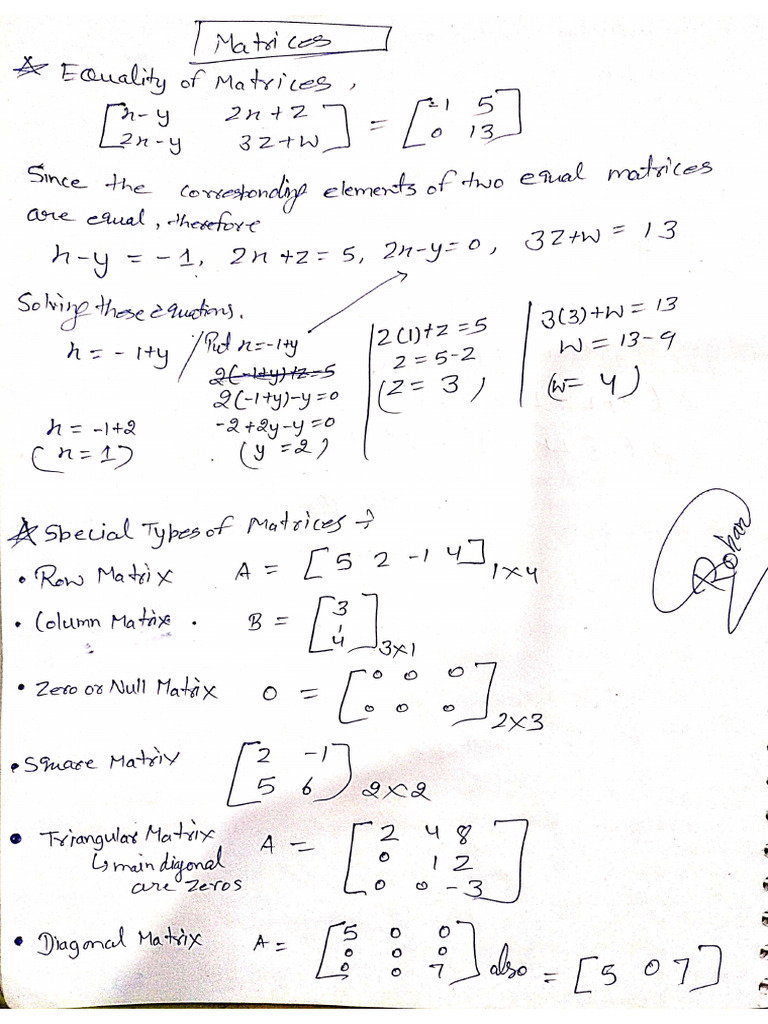 Matrices
☆ Equality of Matrices,
[x-y 2x+z] = [-1 5]
[2x-y 3z+w] [0 13]
Since the corresponding elements of two equal matrices
are equal, therefore
x-y = -1, 2x+z=5, 2x-y=0, 3z+w = 13
Solving these equations.
x = -1+y / Put x=-1+y
2(-1+y)+z=5
2(-1+y)-y=0
-2+2y-y=0
(y=2)
x = -1+2
(x=1)
2(1)+z=5
z=5-2
(z=3)
3(3)+w=13
w=13-9
(w=4)
☆ Special Types of Matrices →
• Row Matrix A = [5 2 -1 4] 1×4
• Column Matrix . B = [3
1
4] 3×1
• Zero or Null Matrix 0 = [0 0 0
0 0 0] 2×3
• Square Matrix [2 -1
5 6] 2×2
• Triangular Matrix A = [2 4 8
↳ main digonal 0 1 2
are zeros 0 0 -3]
• Diagonal Matrix A = [5 0 0
0 0 0
0 0 7] also = [5 0 7]
Rohan